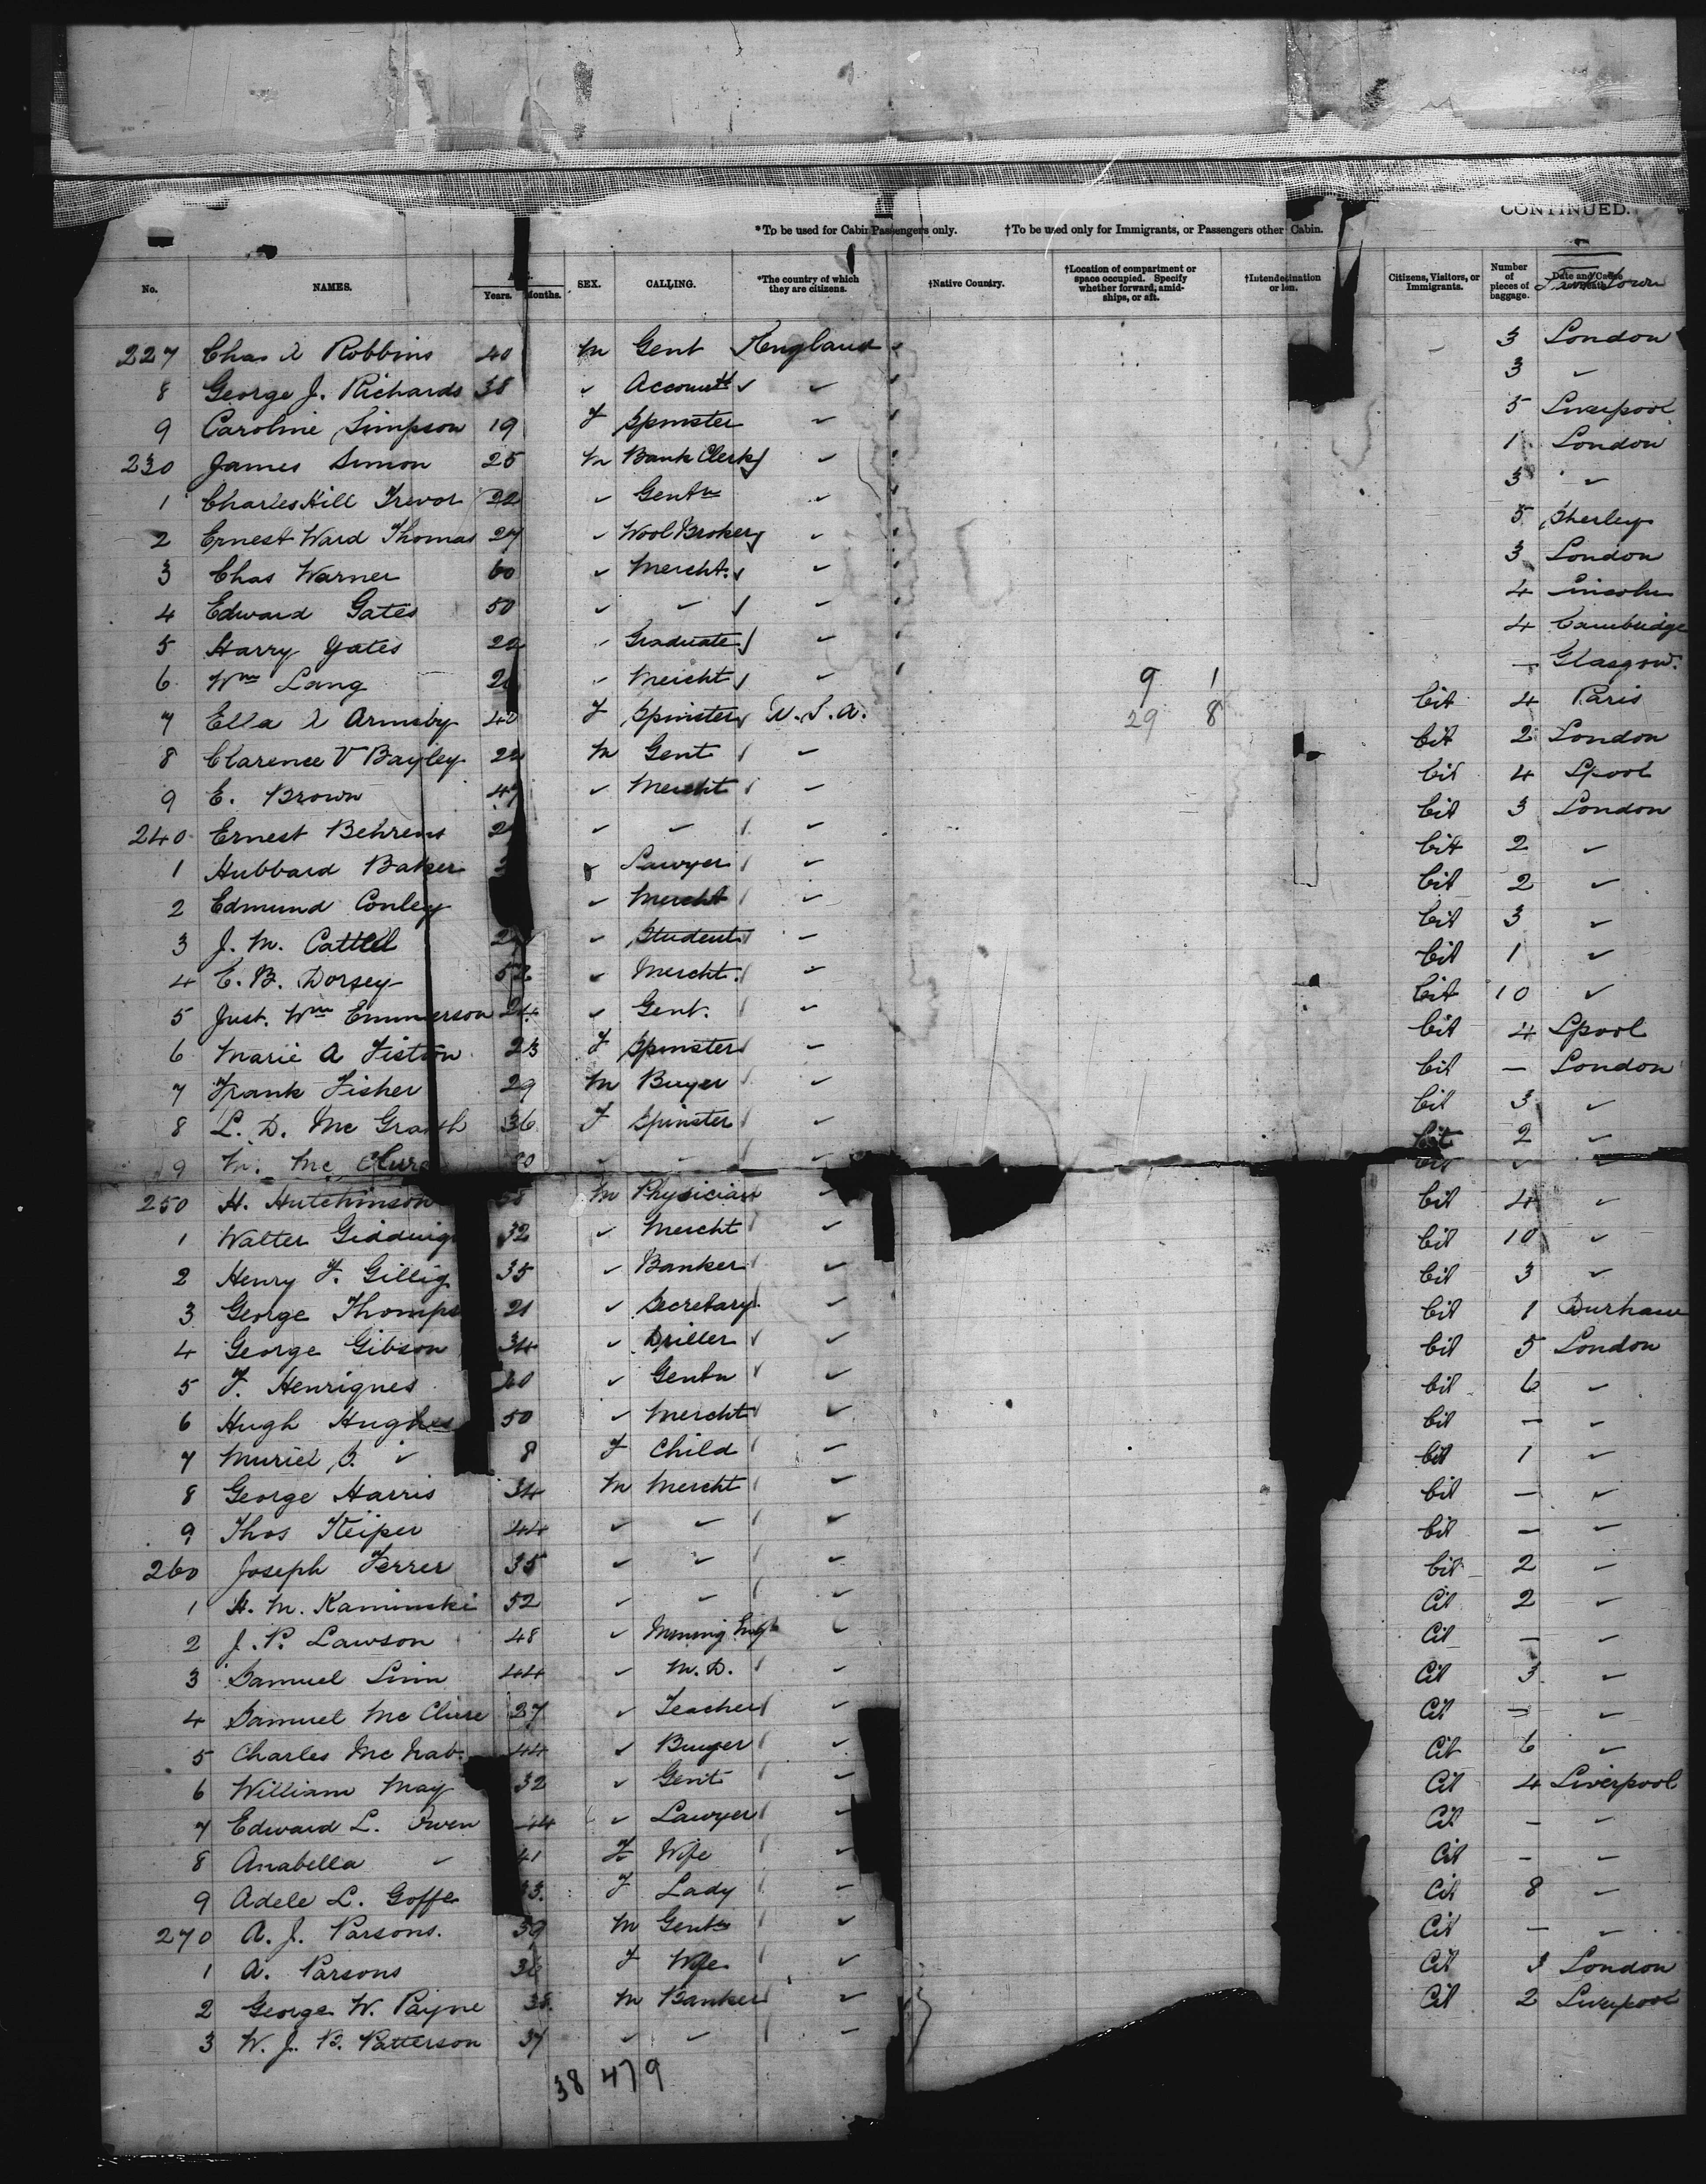 CONTINUED.
*To be used for Cabin Passengers only. †To be used only for Immigrants, or Passengers other Cabin.
No. NAMES. Years. Months. SEX. CALLING. *The country of which they are citizens. †Native Country. †Location of compartment or space occupied. Specify whether forward, amidships, or aft. Citizens, Visitors, or Immigrants. Number of pieces of baggage. Date and Cause
227 Chas A Robbins 40 M Gent England 3 London
8 George J. Richards 38 ✓ Accountt ✓ 3 ✓
9 Caroline Simpson 19 F Spinster ✓ 5 Liverpool
230 James Simon 25 M Bank Clerk ✓ 1 London
1 Charles Hill Trevor 22 ✓ Gentn ✓ 3 ✓
2 Ernest Ward Thomas 27 ✓ Wool Broker ✓ 5 Sherley
3 Chas Warner 60 ✓ Mercht. ✓ 3 London
4 Edward Gates 50 ✓ ✓ ✓ 4 Lincoln
5 Harry Gates 22 ✓ Graduate ✓ 4 Cambridge
6 Wm Lang ✓ Mercht ✓ 9 1 — Glasgow.
7 Ella A Armsby 40 F Spinster U.S.A. 29 8 Cit 4 Paris
8 Clarence V Bayley 22 M Gent ✓ Cit 2 London
9 E. Brown 47 ✓ Mercht ✓ Cit 4 Lpool
240 Ernest Behrens ✓ ✓ ✓ Cit 3 London
1 Hubbard Baker ✓ Lawyer ✓ Cit 2 ✓
2 Edmund Conley ✓ Mercht ✓ Cit 2 ✓
3 J. M. Cattell ✓ Student ✓ Cit 3 ✓
4 E. B. Dorsey 52 ✓ Mercht. ✓ Cit 1 ✓
5 Just. Wm Emmerson 24 ✓ Gent. ✓ Cit 10 ✓
6 Marie A Fistow 23 F Spinster ✓ Cit 4 Lpool
7 Frank Fisher 29 M Buyer ✓ Cit — London
8 L. D. Mc Grath 36 F Spinster ✓ Cit 3 ✓
9 M. Mc Clure ✓ ✓ ✓ Cit 2 ✓
250 H. Hutchinson M Physician ✓ Cit 4 ✓
1 Walter 32 ✓ Mercht ✓ Cit 10 ✓
2 Henry F. Gillig 35 ✓ Banker ✓ Cit 3 ✓
3 George Thomps 21 ✓ Secretary ✓ Cit 1 Durham
4 George Gibson 34 ✓ Driller ✓ Cit 5 London
5 F. Henriques 40 ✓ Gentn ✓ Cit 6 ✓
6 Hugh Hughes 50 ✓ Mercht ✓ Cit — ✓
7 Muriel S. ✓ 8 F Child ✓ Cit 1 ✓
8 George Harris 34 M Mercht ✓ Cit — ✓
9 Thos Keiper 44 ✓ ✓ ✓ Cit — ✓
260 Joseph Ferrer 35 ✓ ✓ ✓ Cit 2 ✓
1 H. M. Kaminski 52 ✓ ✓ ✓ Cit 2 ✓
2 J. P. Lawson 48 ✓ Mining Engr ✓ Cit — ✓
3 Samuel Linn 44 ✓ M.D. ✓ Cit 3 ✓
4 Samuel Mc Clure 27 ✓ Teacher ✓ Cit — ✓
5 Charles Mc Nab 44 ✓ Buyer ✓ Cit 6 ✓
6 William May 32 ✓ Gent ✓ Cit 4 Liverpool
7 Edward L. Owen 44 ✓ Lawyer ✓ Cit — ✓
8 Anabella ✓ 41 F Wife ✓ Cit — ✓
9 Adele L. Goffe 33 F Lady ✓ Cit 8 ✓
270 A. J. Parsons. 39 M Gentn ✓ Cit — ✓
1 A. Parsons F Wife ✓ Cit 3 London
2 George W. Payne 38. M Banker ✓ Cit 2 Liverpool
3 W. J. B. Patterson 37 ✓ ✓ ✓
38 479